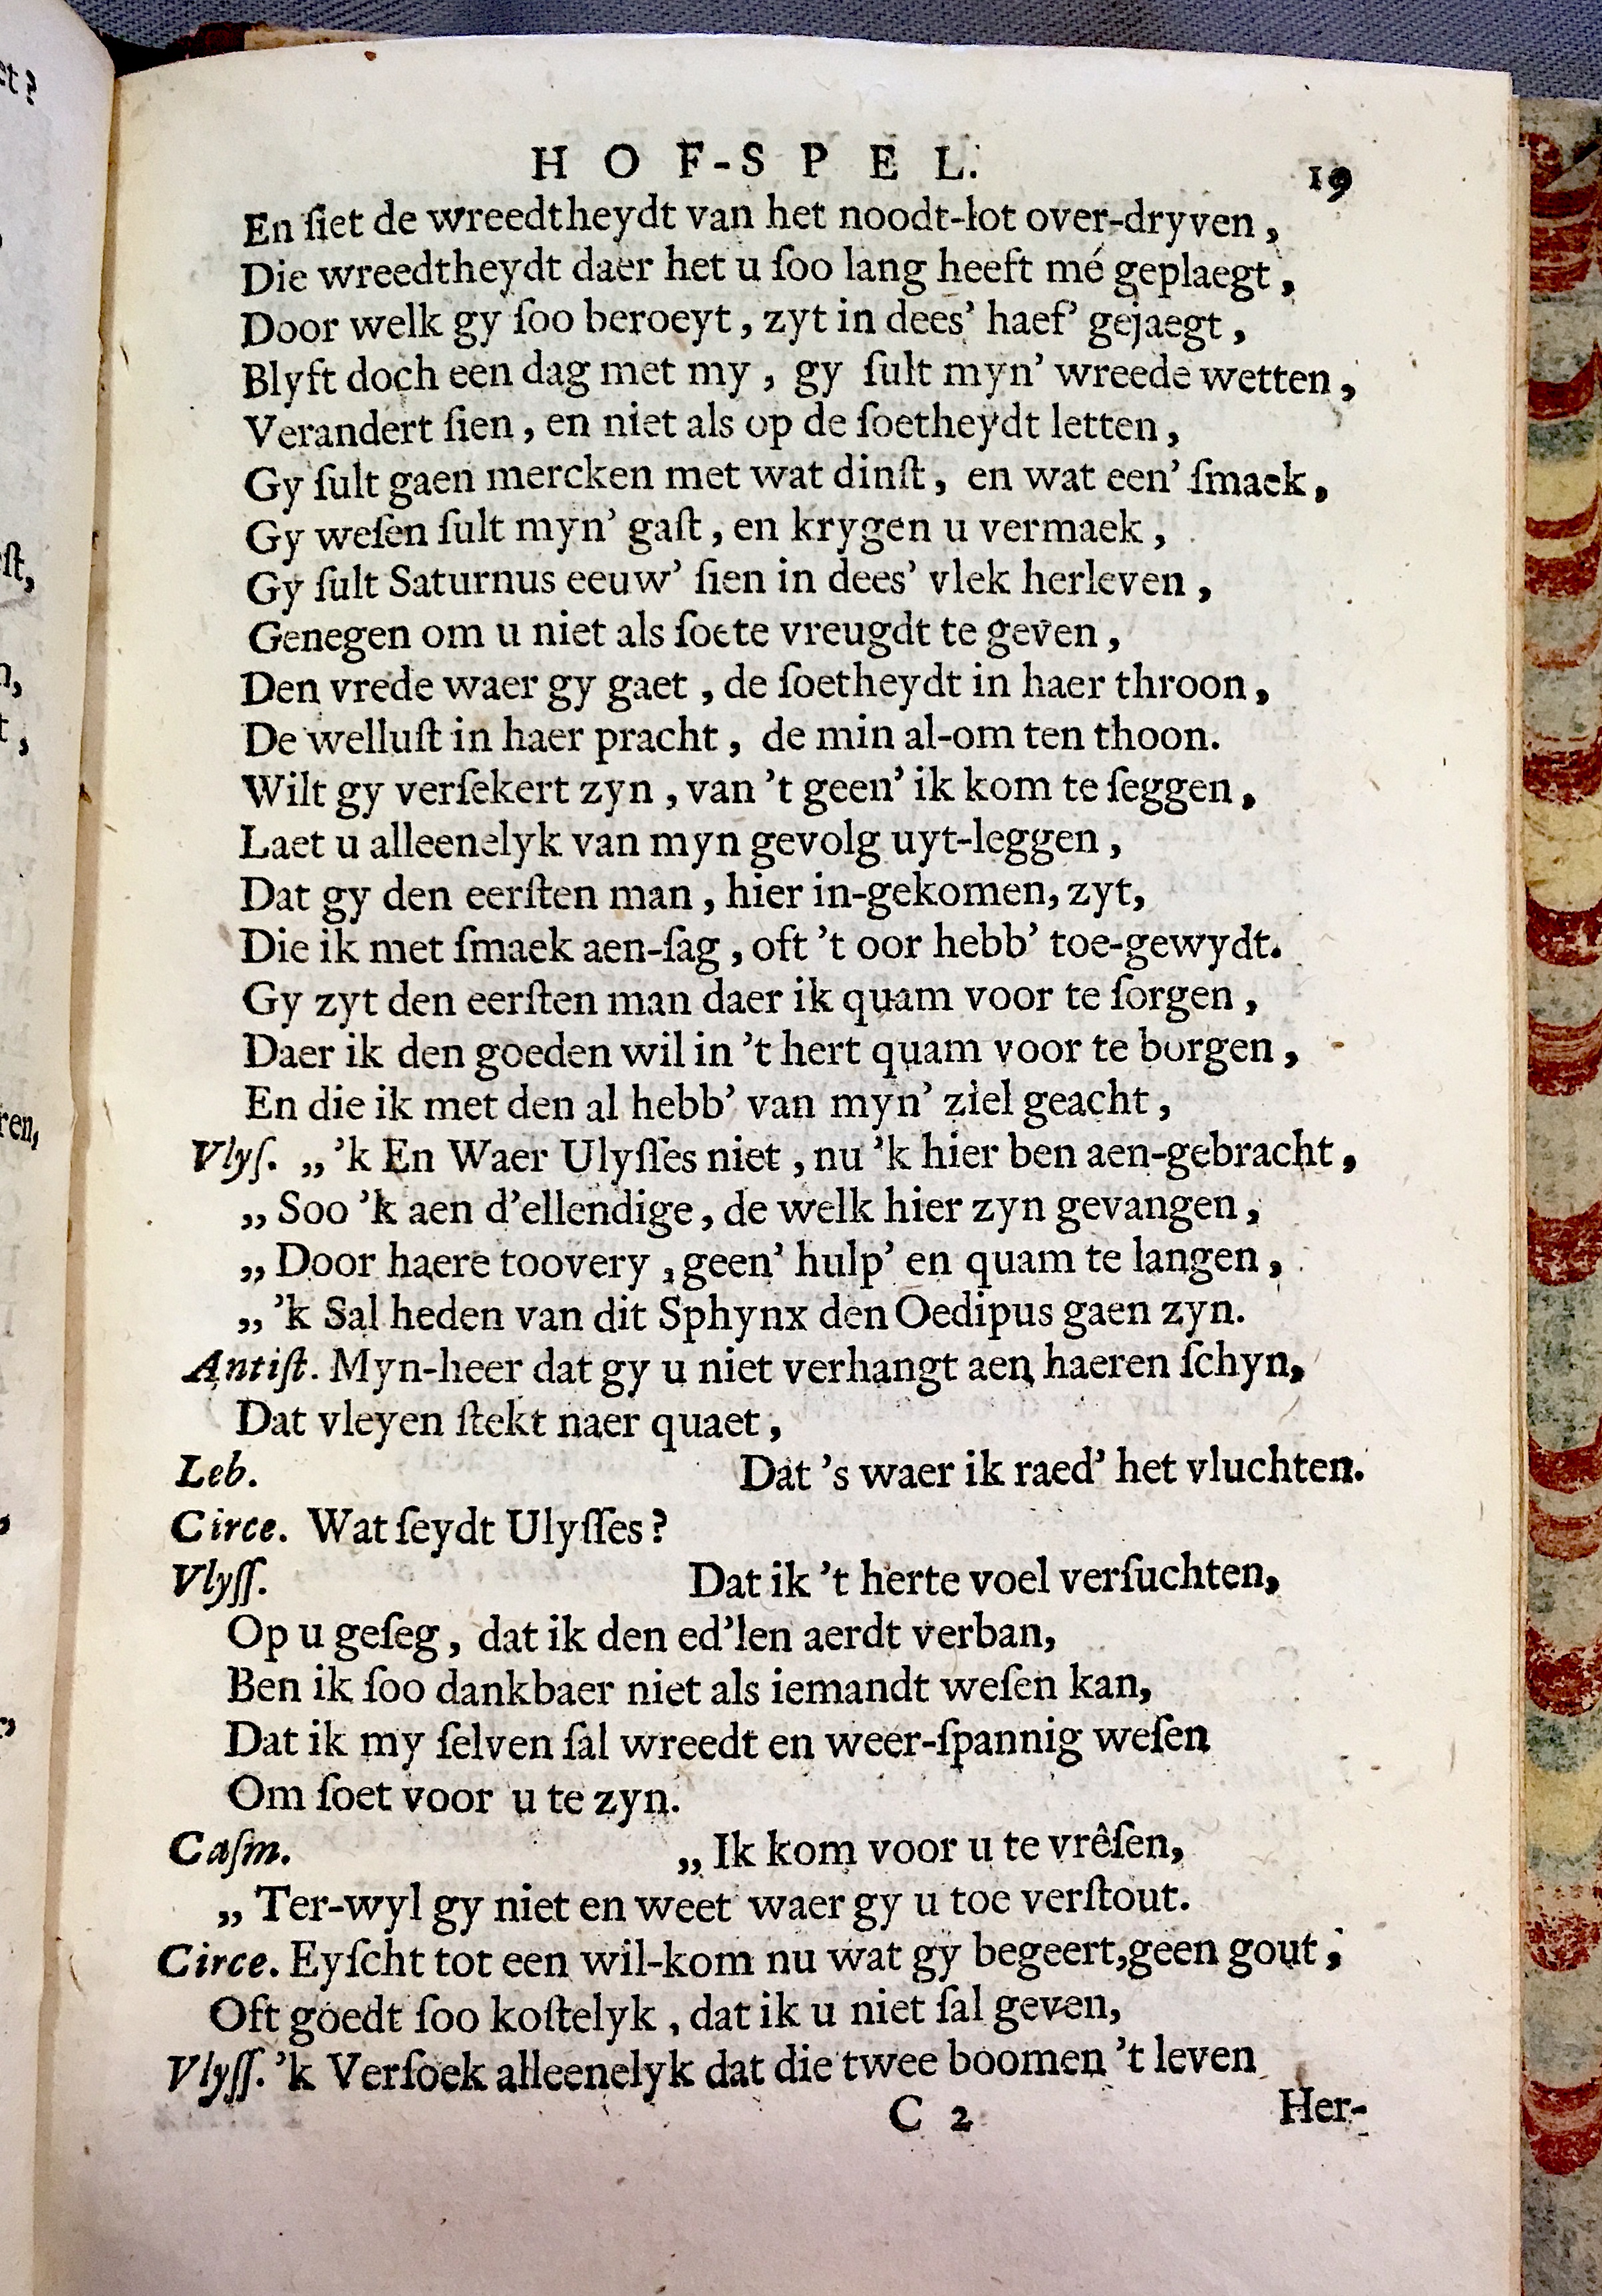 HOF-SPEL. 19
En ſiet de wreedtheydt van het noodt-lot over-dryven,
Die wreedtheydt daer het u ſoo lang heeft mé geplaegt,
Door welk gy ſoo beroeyt, zyt in dees' haef' gejaegt,
Blyft doch een dag met my, gy ſult myn' wreede wetten,
Verandert ſien, en niet als op de ſoetheydt letten,
Gy ſult gaen mercken met wat dinſt, en wat een' ſmaek,
Gy weſen ſult myn' gaſt, en krygen u vermaek,
Gy ſult Saturnus eeuw' ſien in dees' vlek herleven,
Genegen om u niet als ſoete vreugdt te geven,
Den vrede waer gy gaet, de ſoetheydt in haer throon,
De welluſt in haer pracht, de min al-om ten thoon.
Wilt gy verſekert zyn, van 't geen' ik kom te ſeggen,
Laet u alleenelyk van myn gevolg uyt-leggen,
Dat gy den eerſten man, hier in-gekomen, zyt,
Die ik met ſmaek aen-ſag, oft 't oor hebb' toe-gewydt.
Gy zyt den eerſten man daer ik quam voor te ſorgen,
Daer ik den goeden wil in 't hert quam voor te borgen,
En die ik met den al hebb' van myn' ziel geacht,
Vlyſ. „'k En Waer Ulyſſes niet, nu 'k hier ben aen-gebracht,
„Soo 'k aen d'ellendige, de welk hier zyn gevangen,
„Door haere toovery, geen' hulp' en quam te langen,
„'k Sal heden van dit Sphynx den Oedipus gaen zyn.
Antiſt. Myn-heer dat gy u niet verhangt aen haeren ſchyn,
Dat vleyen ſtekt naer quaet,
Leb. Dat 's waer ik raed' het vluchten.
Circe. Wat ſeydt Ulyſſes?
Vlyſſ. Dat ik 't herte voel verſuchten,
Op u geſeg, dat ik den ed'len aerdt verban,
Ben ik ſoo dankbaer niet als iemandt weſen kan,
Dat ik my ſelven ſal wreedt en weer-ſpannig weſen
Om ſoet voor u te zyn.
Caſm. „Ik kom voor u te vrêſen,
„Ter-wyl gy niet en weet waer gy u toe verſtout.
Circe. Eyſcht tot een wil-kom nu wat gy begeert, geen gout,
Oft goedt ſoo koſtelyk, dat ik u niet ſal geven,
Vlyſſ. 'k Verſoek alleenelyk dat die twee boomen 't leven
C 2 Her-